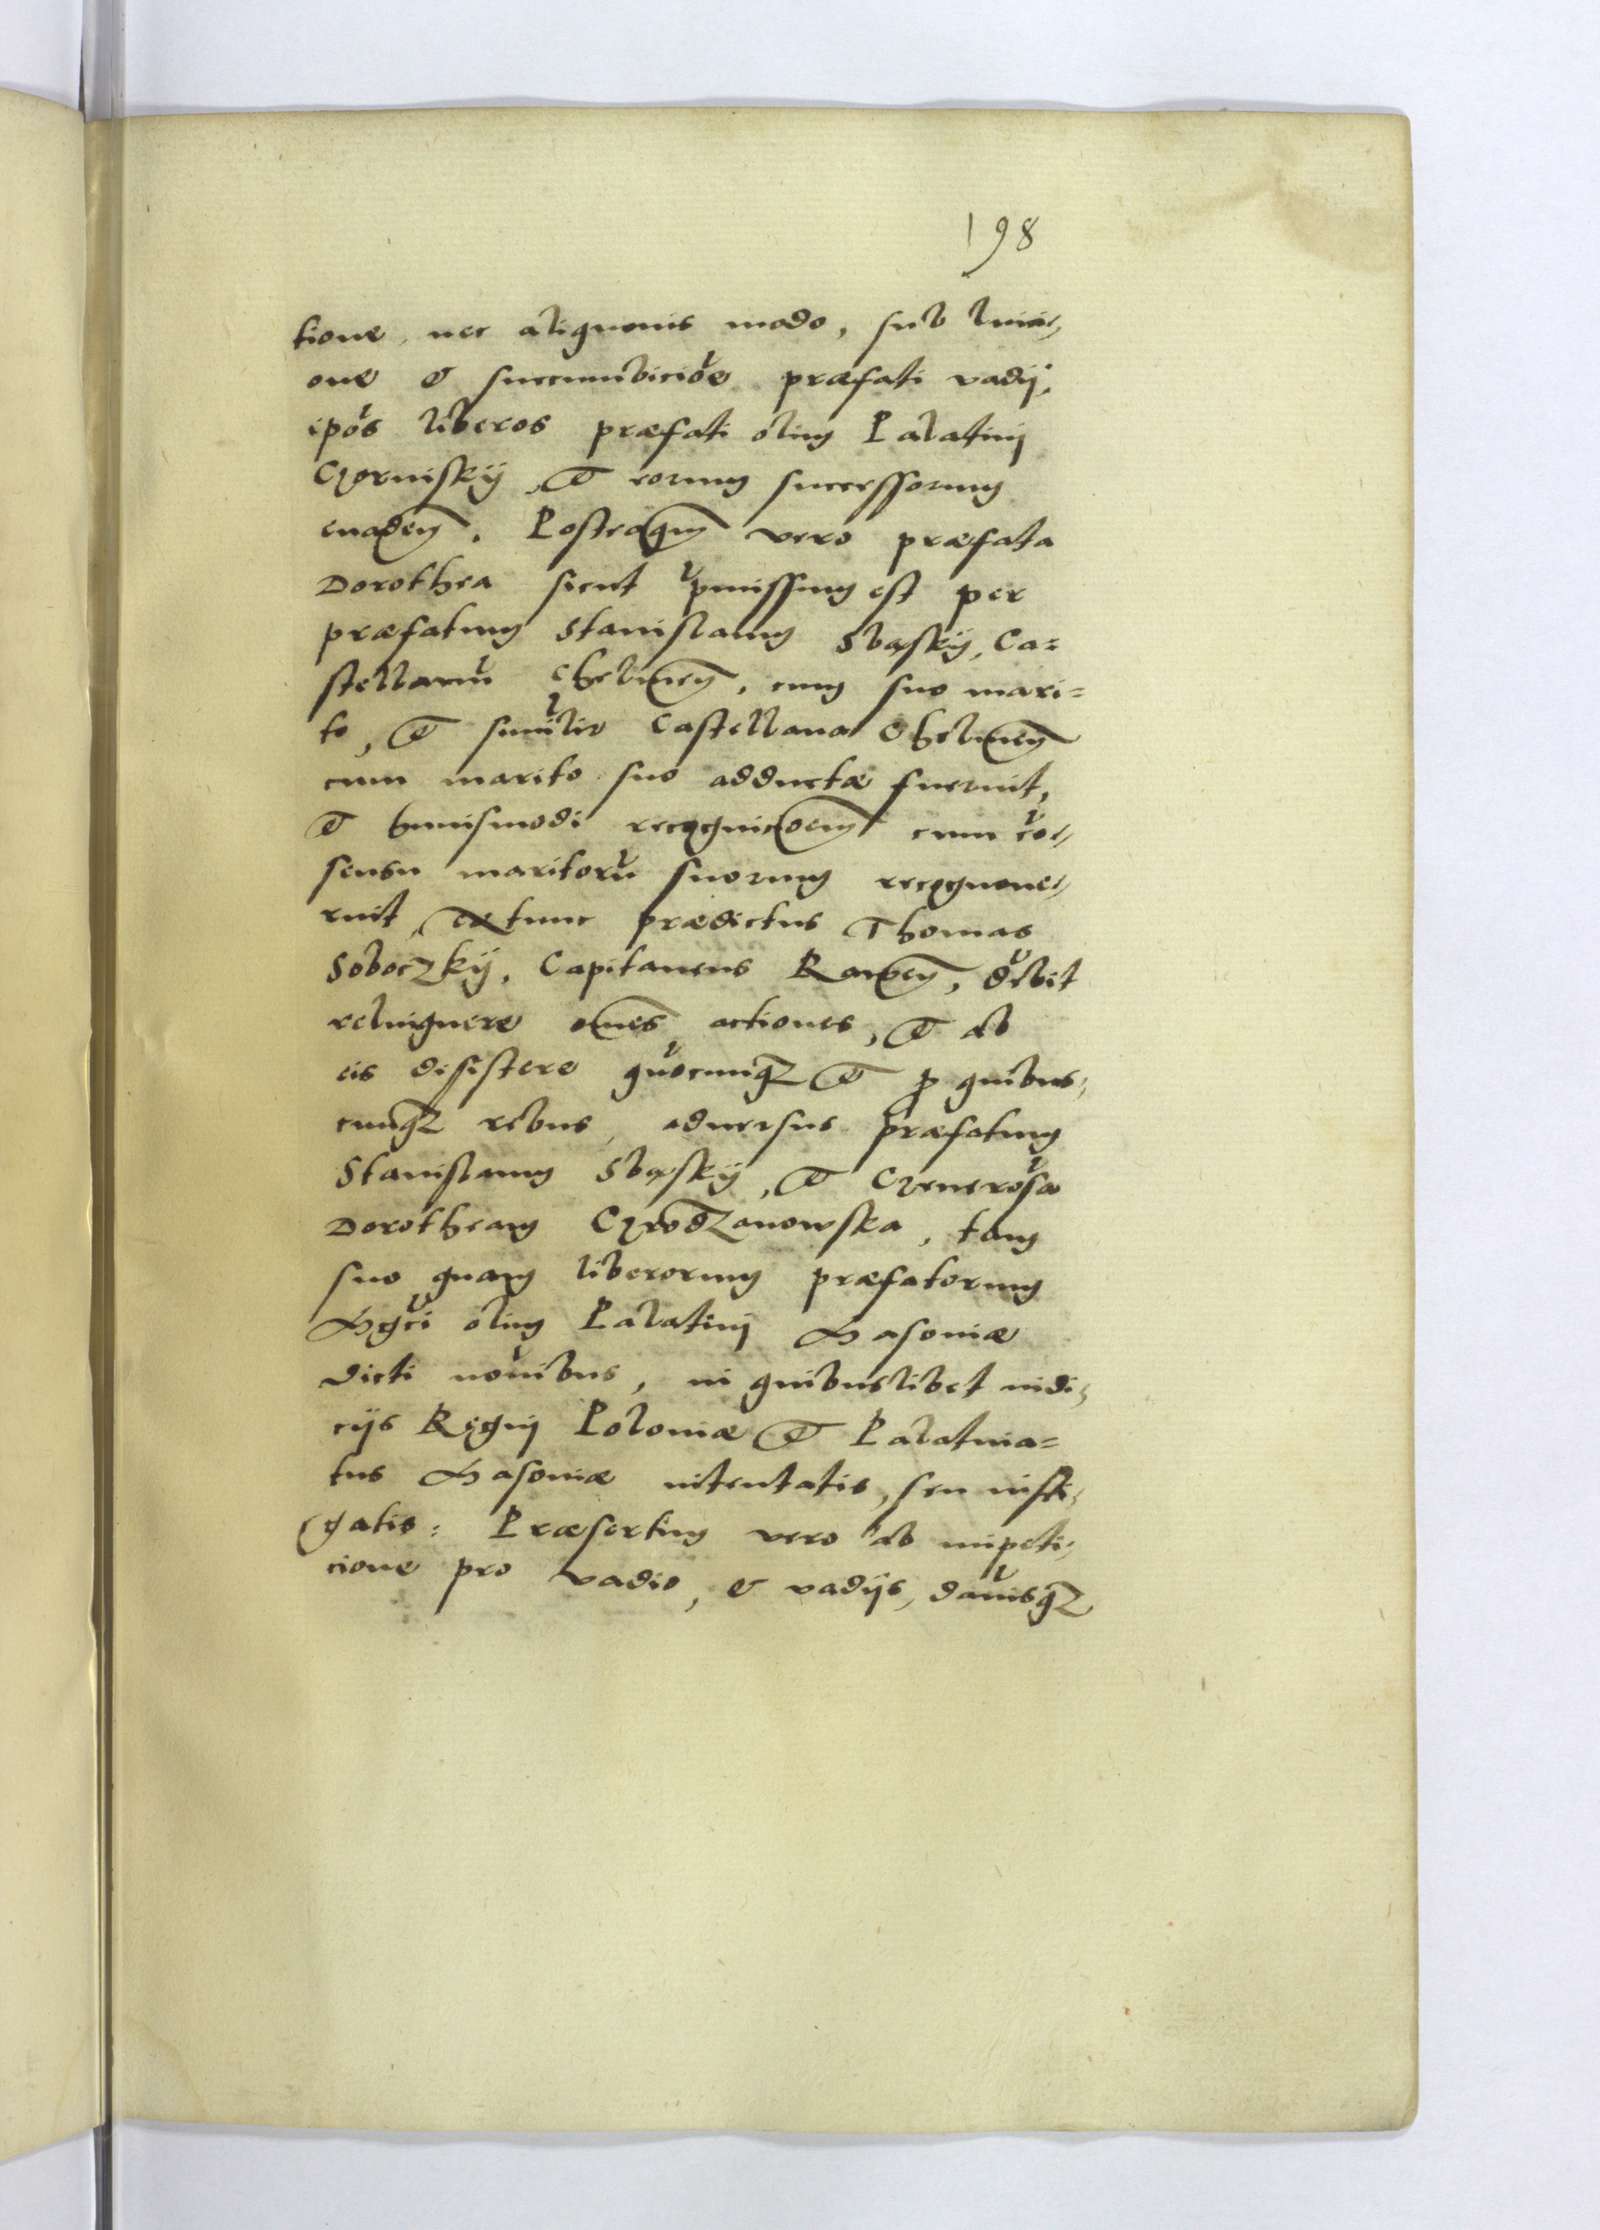 198
tione, nec aliquovis modo, sub luici-
one et succumbiciõe præfati vadij,
ipõs liberos præfati olim Palatini
Gorinskÿ, et eorum successorum
evaden̄. Posteaqm̄ vero præfata
Dorothea sicut p̃missum est per
præfatum Stanislaum Sbąskÿ, Ca=
stellanũ Chelmen̄, cum suo mari=
to, et simil̃ir Castellana Chelmen̄
cum marito suo adductæ fuerint,
et huiusmodi recognicōem̄ cum cõ-
sensu maritorũ suorum recognove-
rint, extunc prædictus Thomas
Soboczkÿ, Capitaneus Raven̄, dẽbit
relinquere om̄es actiones, et ab
eis desistere quõcunqz et ꝓ quibus-
cunqz rebus, adversus præfatum
Stanislaum Sbąskÿ, et Generosã
Dorotheam Grodzanowska, tam
suo quam liberorum præfatorum
Mgc̃i olim Palatini Masoviæ
dicti noĩnibus, in quibuslibet iudi-
cijs Regni Poloniæ et Palatina=
tus Masoviæ intentatis, seu insti-
gatis: Præsertim vero ab impeti-
cione pro vadio, et vadijs, dam̃isqz